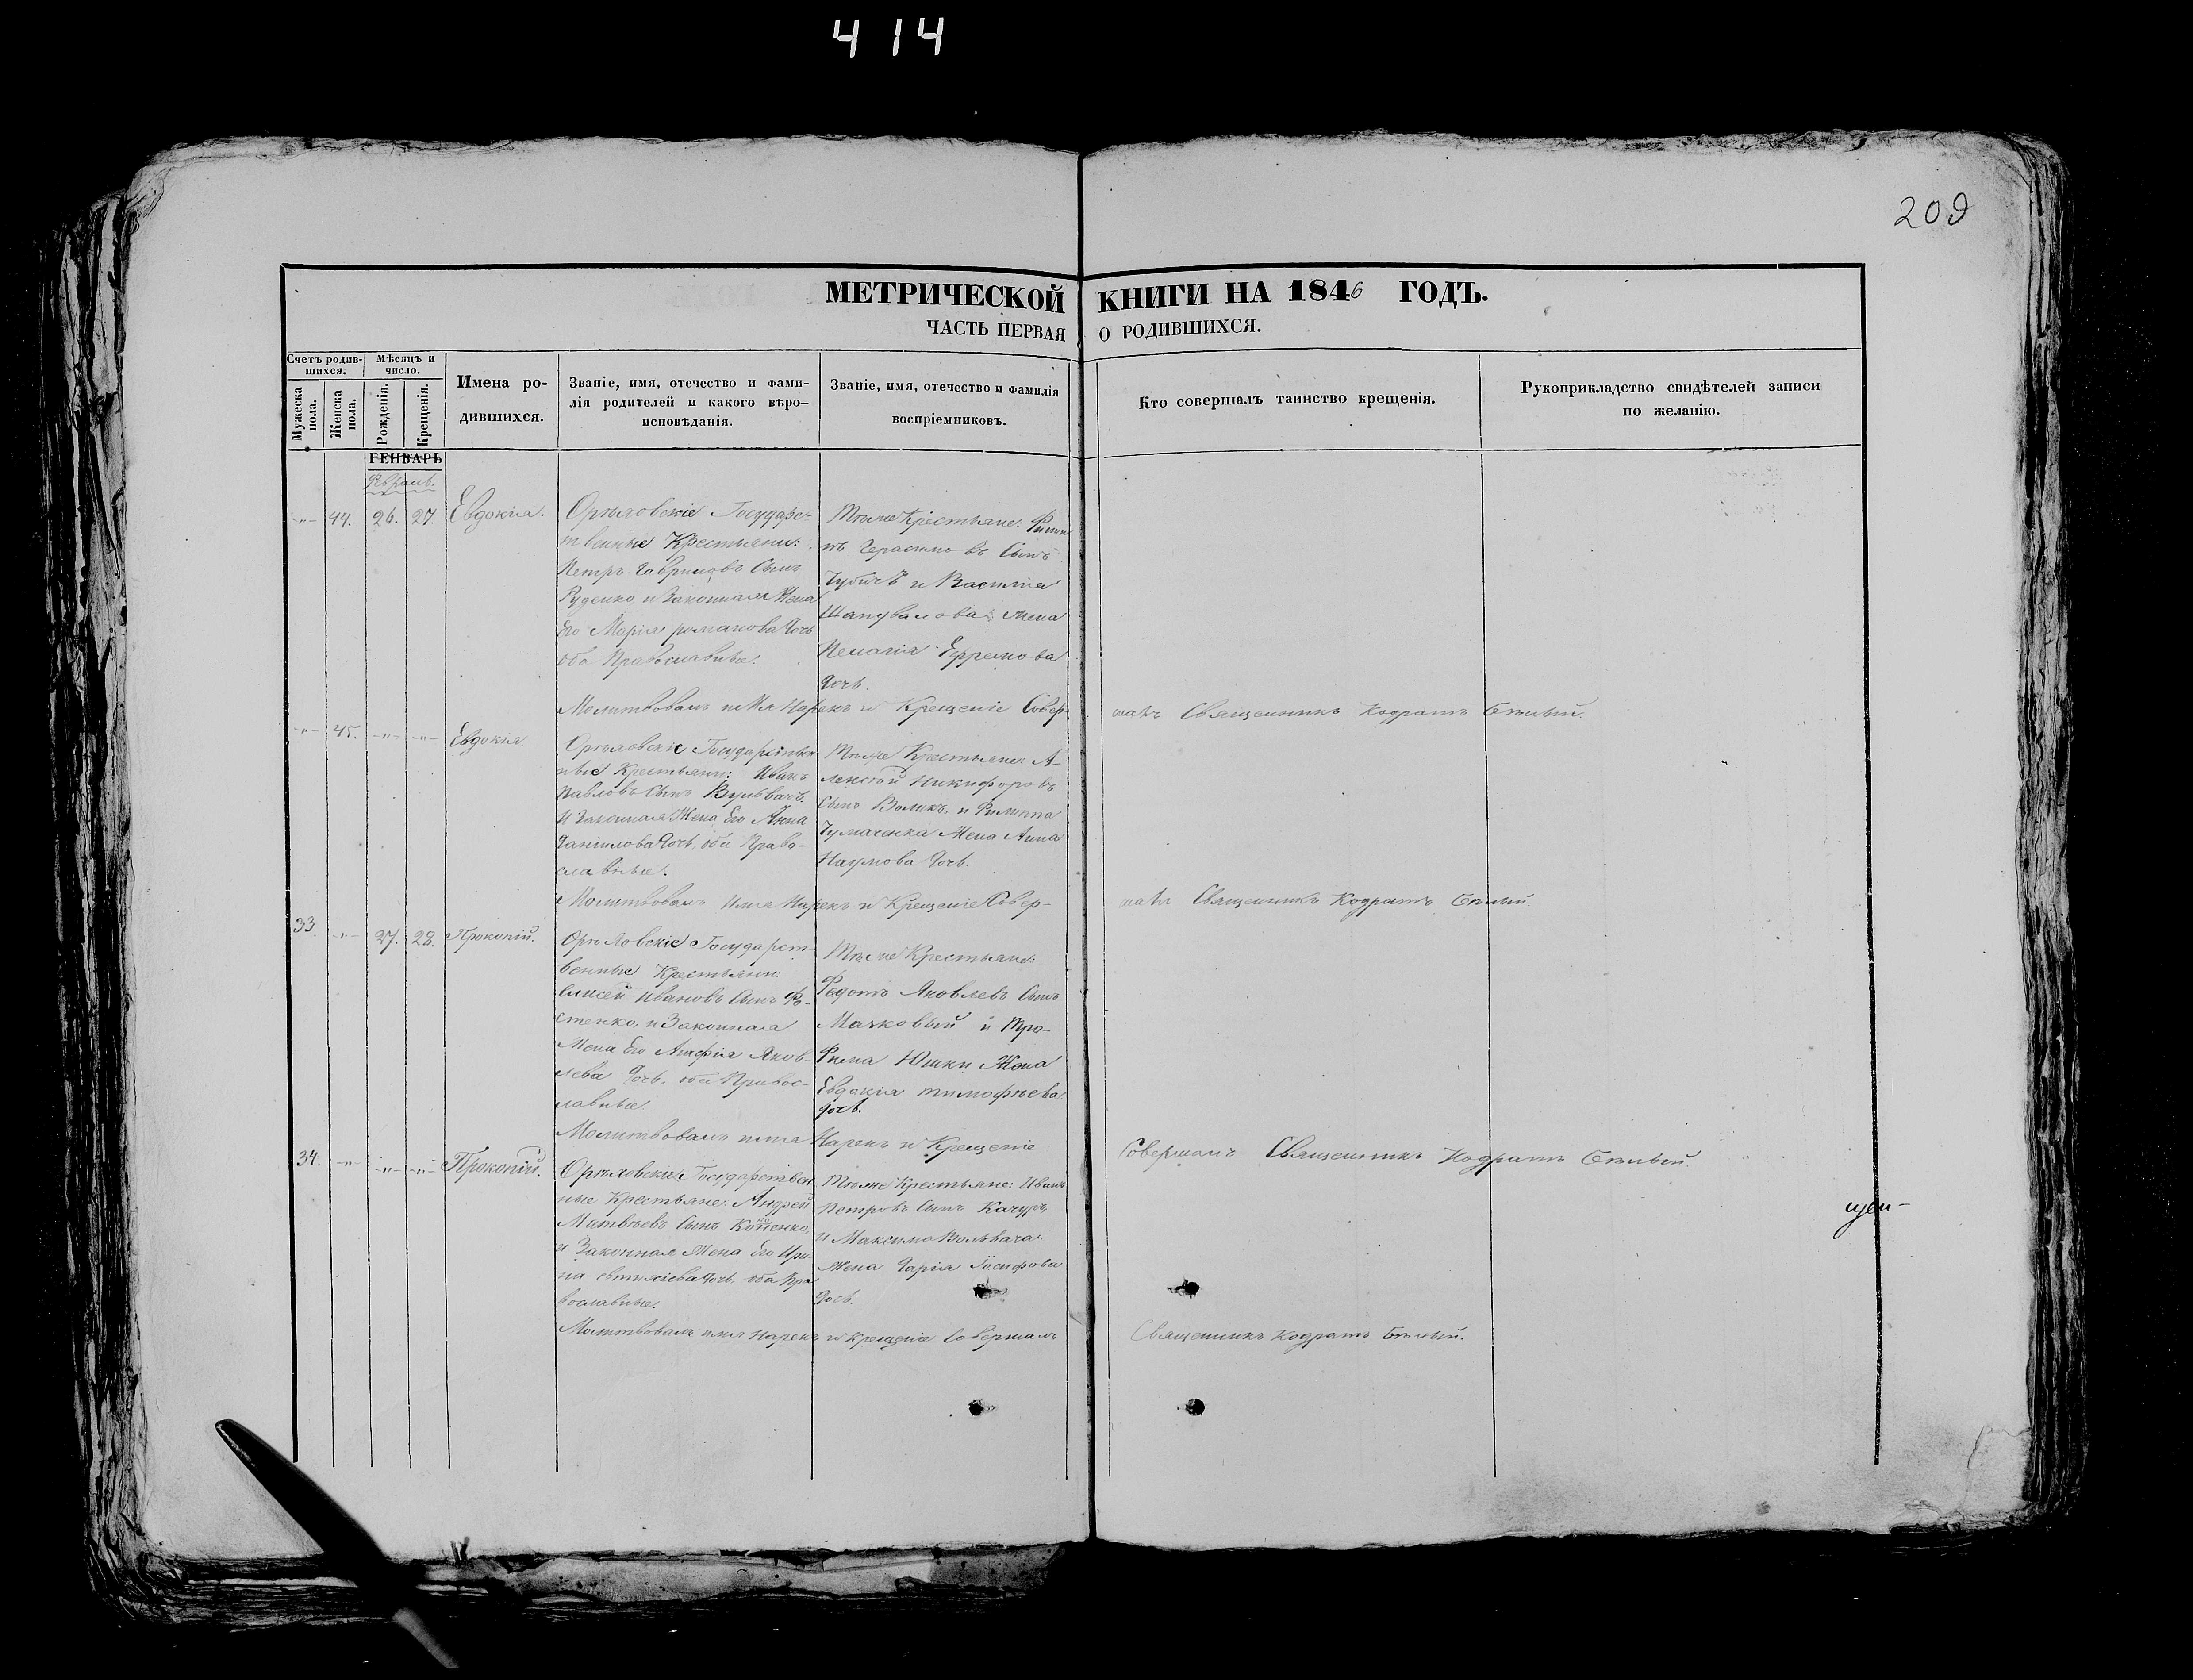 414
209
МЕТРИЧЕСКОЙ КНИГИ НА 1846 ГОДЪ.
ЧАСТЬ ПЕРВАЯ О РОДИВШИХСЯ.
Счетъ родив-
шихся.
Мужеска
пола.
Женска
пола.
Мѣсяцъ и
число.
Рожденія.
Крещенія.
Имена ро-
дившихся.
Званіе, имя, отечество и фами-
лія родителей и какого вѣро-
исповѣданія.
Званіе, имя, отечество и фамилія
воспріемниковъ.
Кто совершалъ таинство крещенія.
Рукоприкладство свидѣтелей записи
по желанію.
ГЕНВАРЬ
-"- 44. 26. 27. Евдокіа.
Орѣховскіе Государс-
твенные Крестьяни:
Петръ Гавриловъ Сынъ
Руденко и Законная Жена
Его Марія романова Дочь
оба Православные.
Тѣ же Крестьяне:
Герасимовъ Сынъ
и Василіа
Шаповалова Жена
Пелагія Ефремова
Дочь.
Молитвовалъ имя Нарекъ и Крещеніе Совер-
шалъ Священникъ Кодратъ Бѣлый.
-"- 45. -"- -"- Евдокія
Орѣховскіе Государствен
ные Крестьяни: Иванъ
Павловъ Сынъ Вульвачъ.
и Законная Жена Его Анна
Даніилова Дочь, оба Право-
славные.
Тѣ же Крестьяне: А-
лексѣй Никифоровъ
Сынъ Воликъ, и Филиппа
Чумаченка Жена Анна
Наумова Дочь.
Молитвовалъ Имя Нарекъ и Крещеніе Совер-
шалъ Священникъ Кодратъ Бѣлый.
33. -"- 27. 28. Прокопій.
Орѣховскіе Государст-
венные Крестьяни:
Елисей Ивановъ Сынъ Фо-
стенко, и Законная
Жена Его Агафія Яков-
лева Дочь, оба Правос-
лавные.
Тѣ же Крестьяне:
Федотъ Яковлевъ Сынъ
Мачковый и Тро-
фима Юшки Жена
Евдокія тимофѣева
дочь.
Молитвовалъ имя Нарекъ и Крещеніе
Совершалъ Священникъ Кодратъ Бѣлый.
34. -"- -"- -"- Прокопій.
Орѣховскія Государствен
ные Крестьяне: Андрей
Матвѣевъ Сынъ
и Законная Жена Его Ири-
на евтихіева Дочь, оба Пра
вославные.
Тѣ же Крестьяне: Иванъ
Петровъ Сынъ Качуръ,
и Максима Вольвача
Жена Дарія Іосифова
Дочь.
Молитвовалъ имя Нарекъ и крещеніе Совершалъ
Священникъ Кодратъ Бѣлый.
щен-